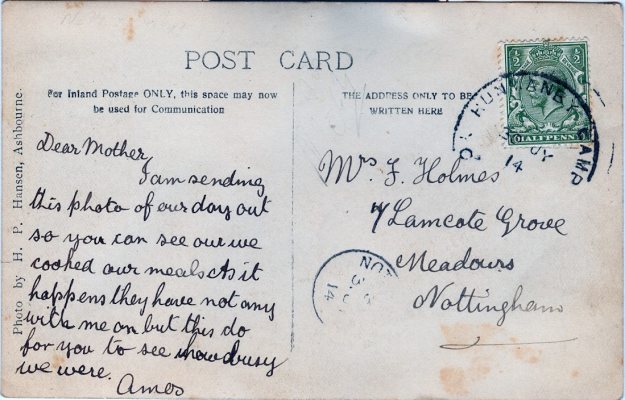 POST CARD
For Inland Postage ONLY, this space may now
be used for Communication
THE ADDRESS ONLY TO BE
WRITTEN HERE
Photo by H. P. Hansen, Ashbourne.
Dear Mother
I am sending
this photo of our day out
so you can see our we
cooked our meals As it
happens they have not any
with me on but this do
for you to see how busy
we were.
Amos
Mrs F. Holmes
7 Lamcote Grove
Meadows
Nottingham
½ ½
HALFPENNY
CAMP
14
14